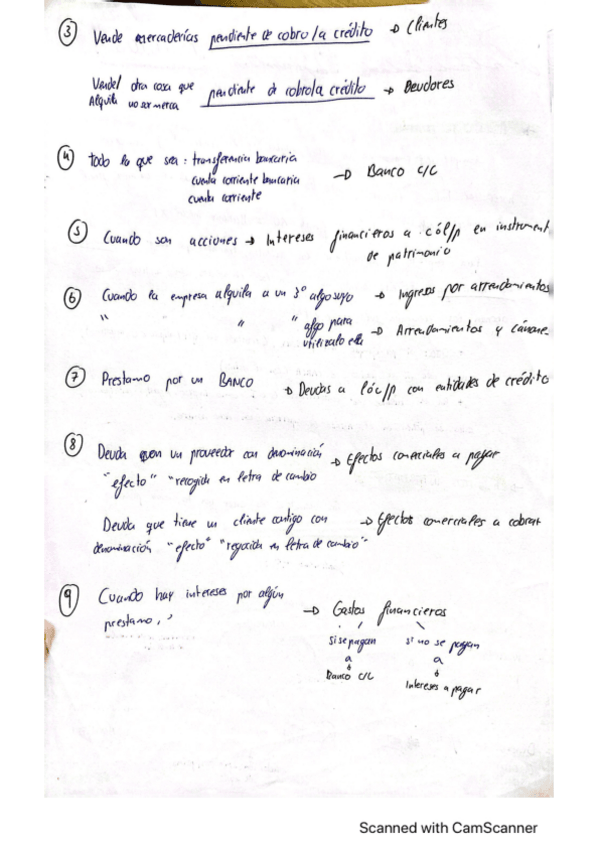 3 Vende mercaderías pendiente de cobro/a crédito → Clientes
Vende/ otra cosa que
Alquila no sea merca pendiente d cobro/a crédito → Deudores
4 Todo lo que sea: transferencia bancaria
cuenta corriente bancaria → Banco c/c
cuenta corriente
5 Cuando son acciones → Intereses financieros a c ó l/p en instrument
de patrimonio
6 Cuando la empresa alquila a un 3º algo suyo → Ingresos por arrendamientos
" " " algo para
utilizalo ella → Arrendamientos y cánone
7 Prestamo por un BANCO → Deudas a l ó c/p con entidades de crédito
8 Deuda con un proveedor con denominación → Efectos comerciales a pagar
"efecto" "recogida en letra de cambio
Deuda que tiene un cliente contigo con → Efectos comerciales a cobrar
denominación "efecto" "recogida en letra de cambio"
9 Cuando hay intereses por algún
prestamo → Gastos financieros
Si se pagan si no se pagan
a a
Banco c/c Intereses a pagar
Scanned with CamScanner